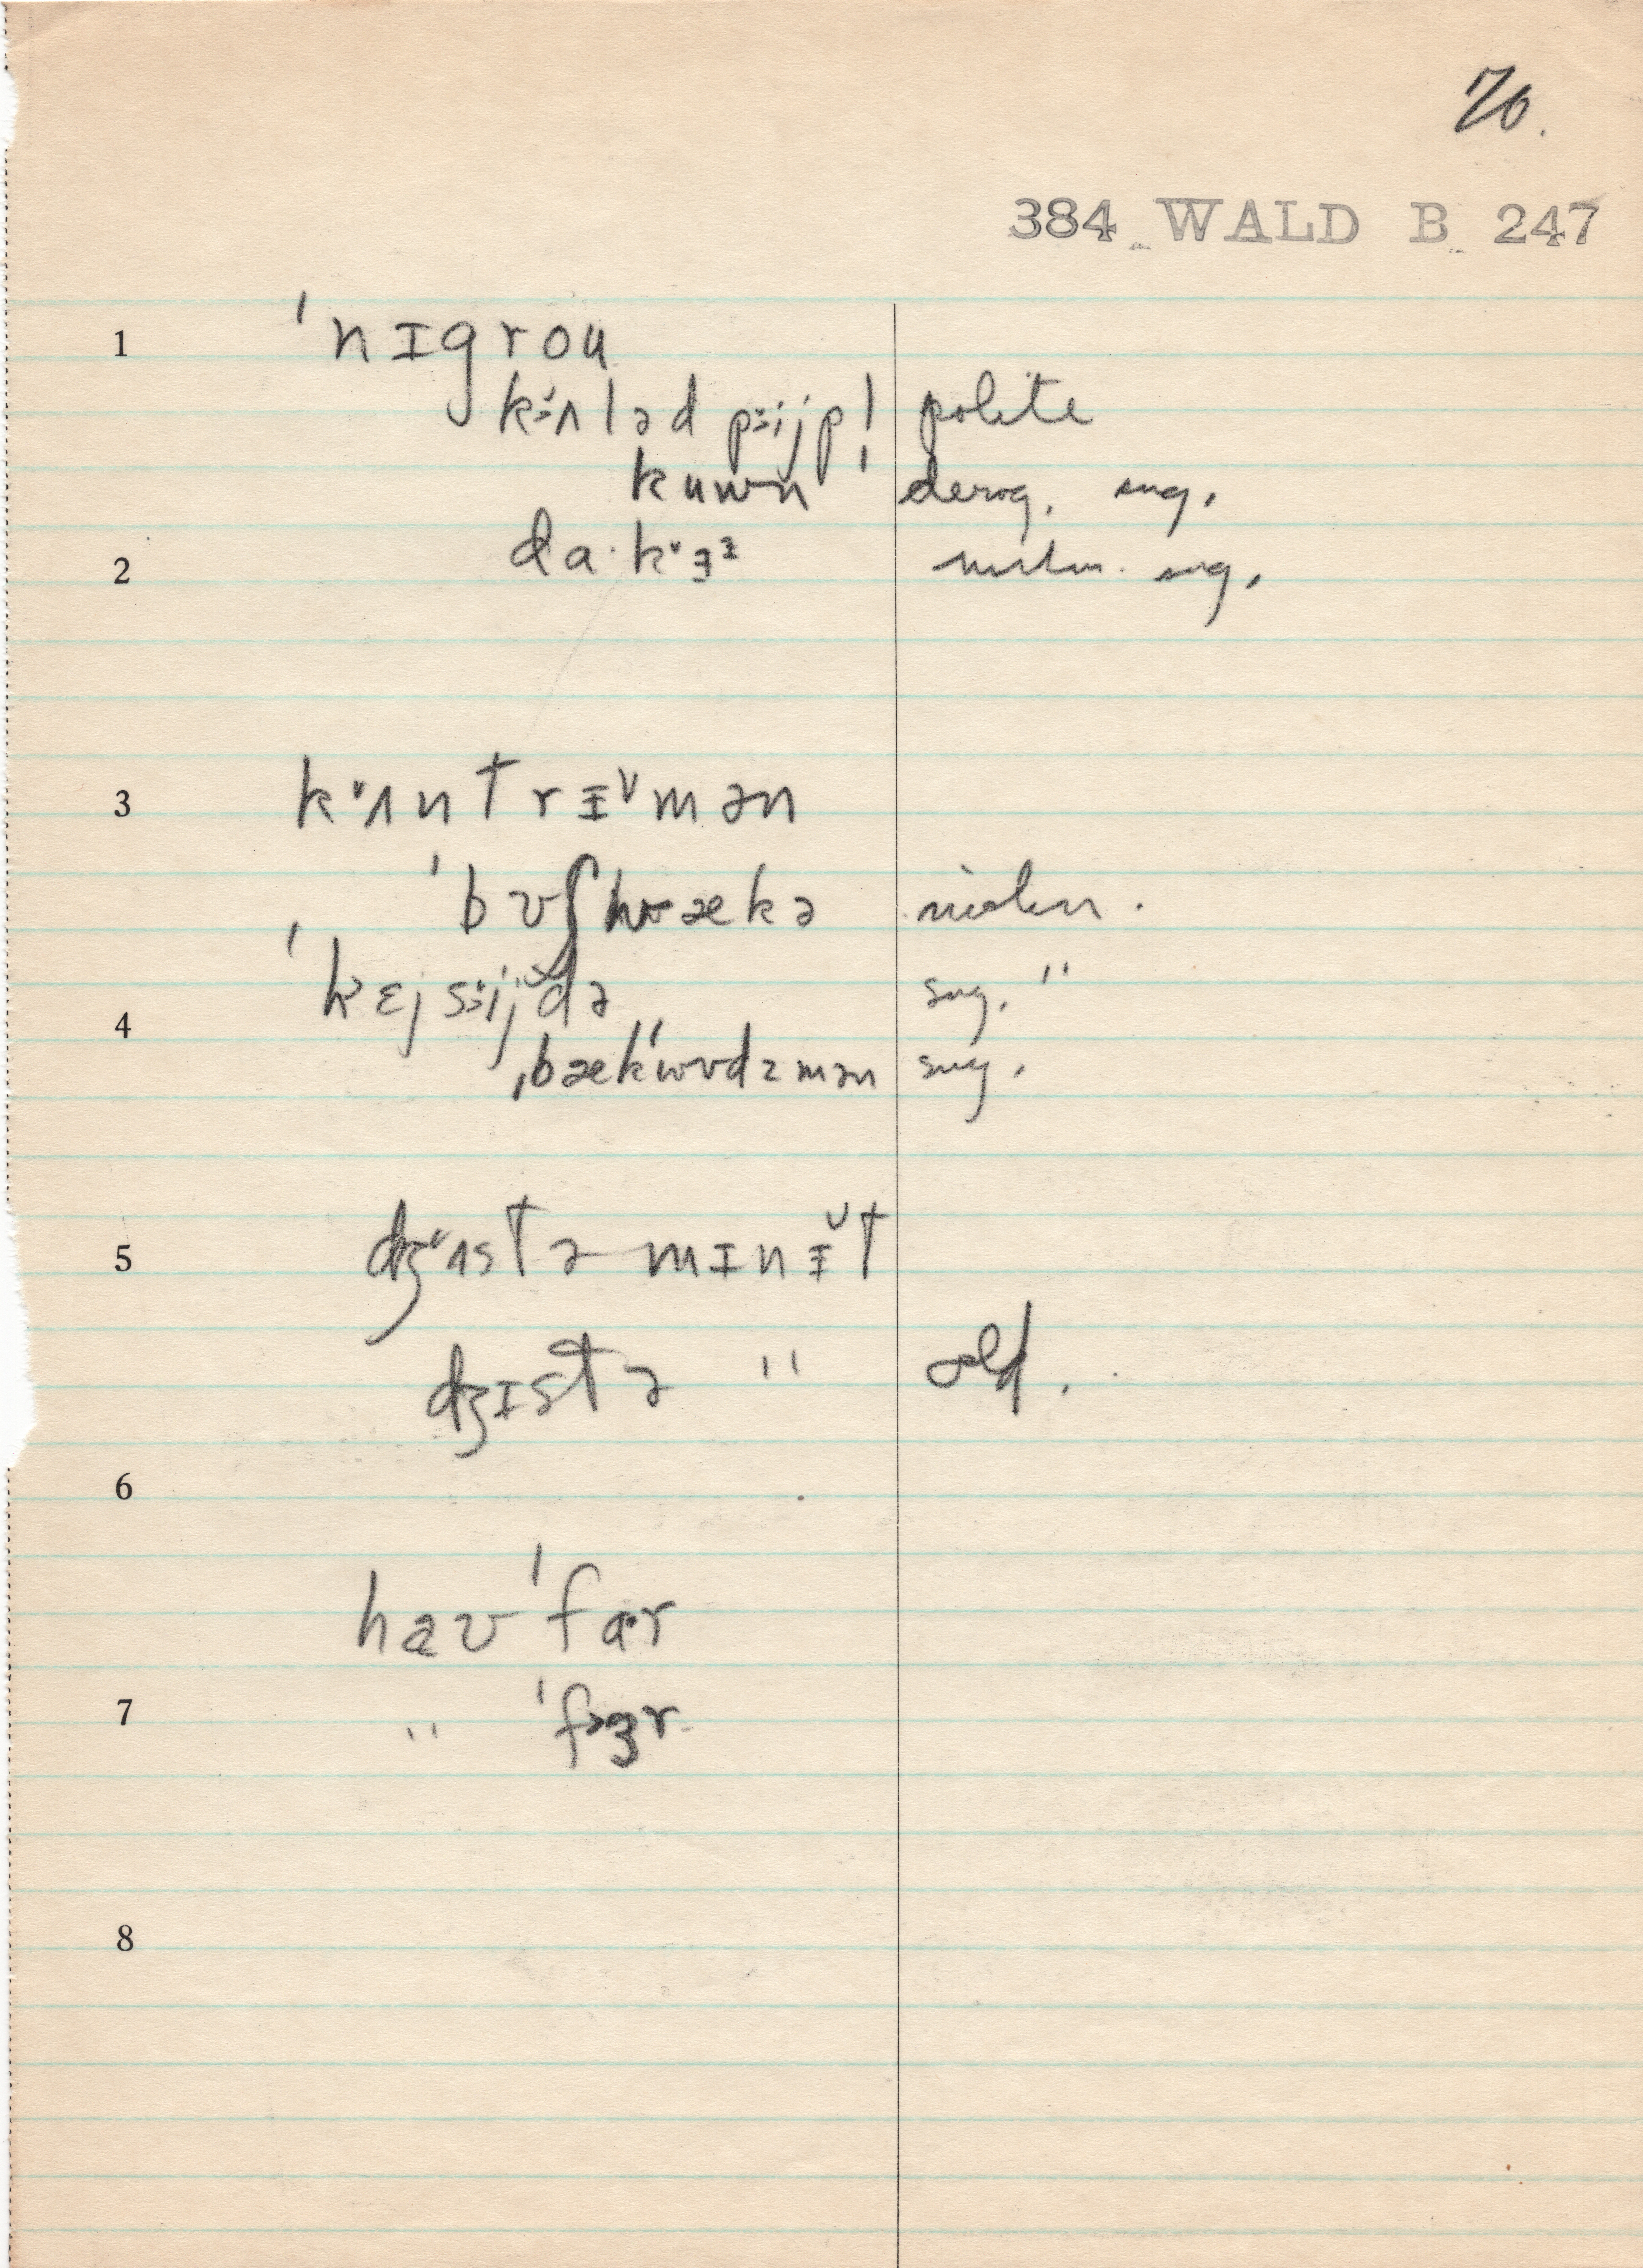 70.
384 WALD B 247
1 ˈnɪgrou
kʌləd pijp! polite
kuwn derog. sug.
2 da·k
sug.
3 kʌntrɪ̆mən
ˈbʊʃwækə
4 ˈkɛjsijdə sug. "
ˌbækˈwʊdzmən sug.
5 dʒʌst ə mɪnɪ̆t
dʒɪst ə " old.
6
haʊ ˈfar
7 " ˈfɜr
8